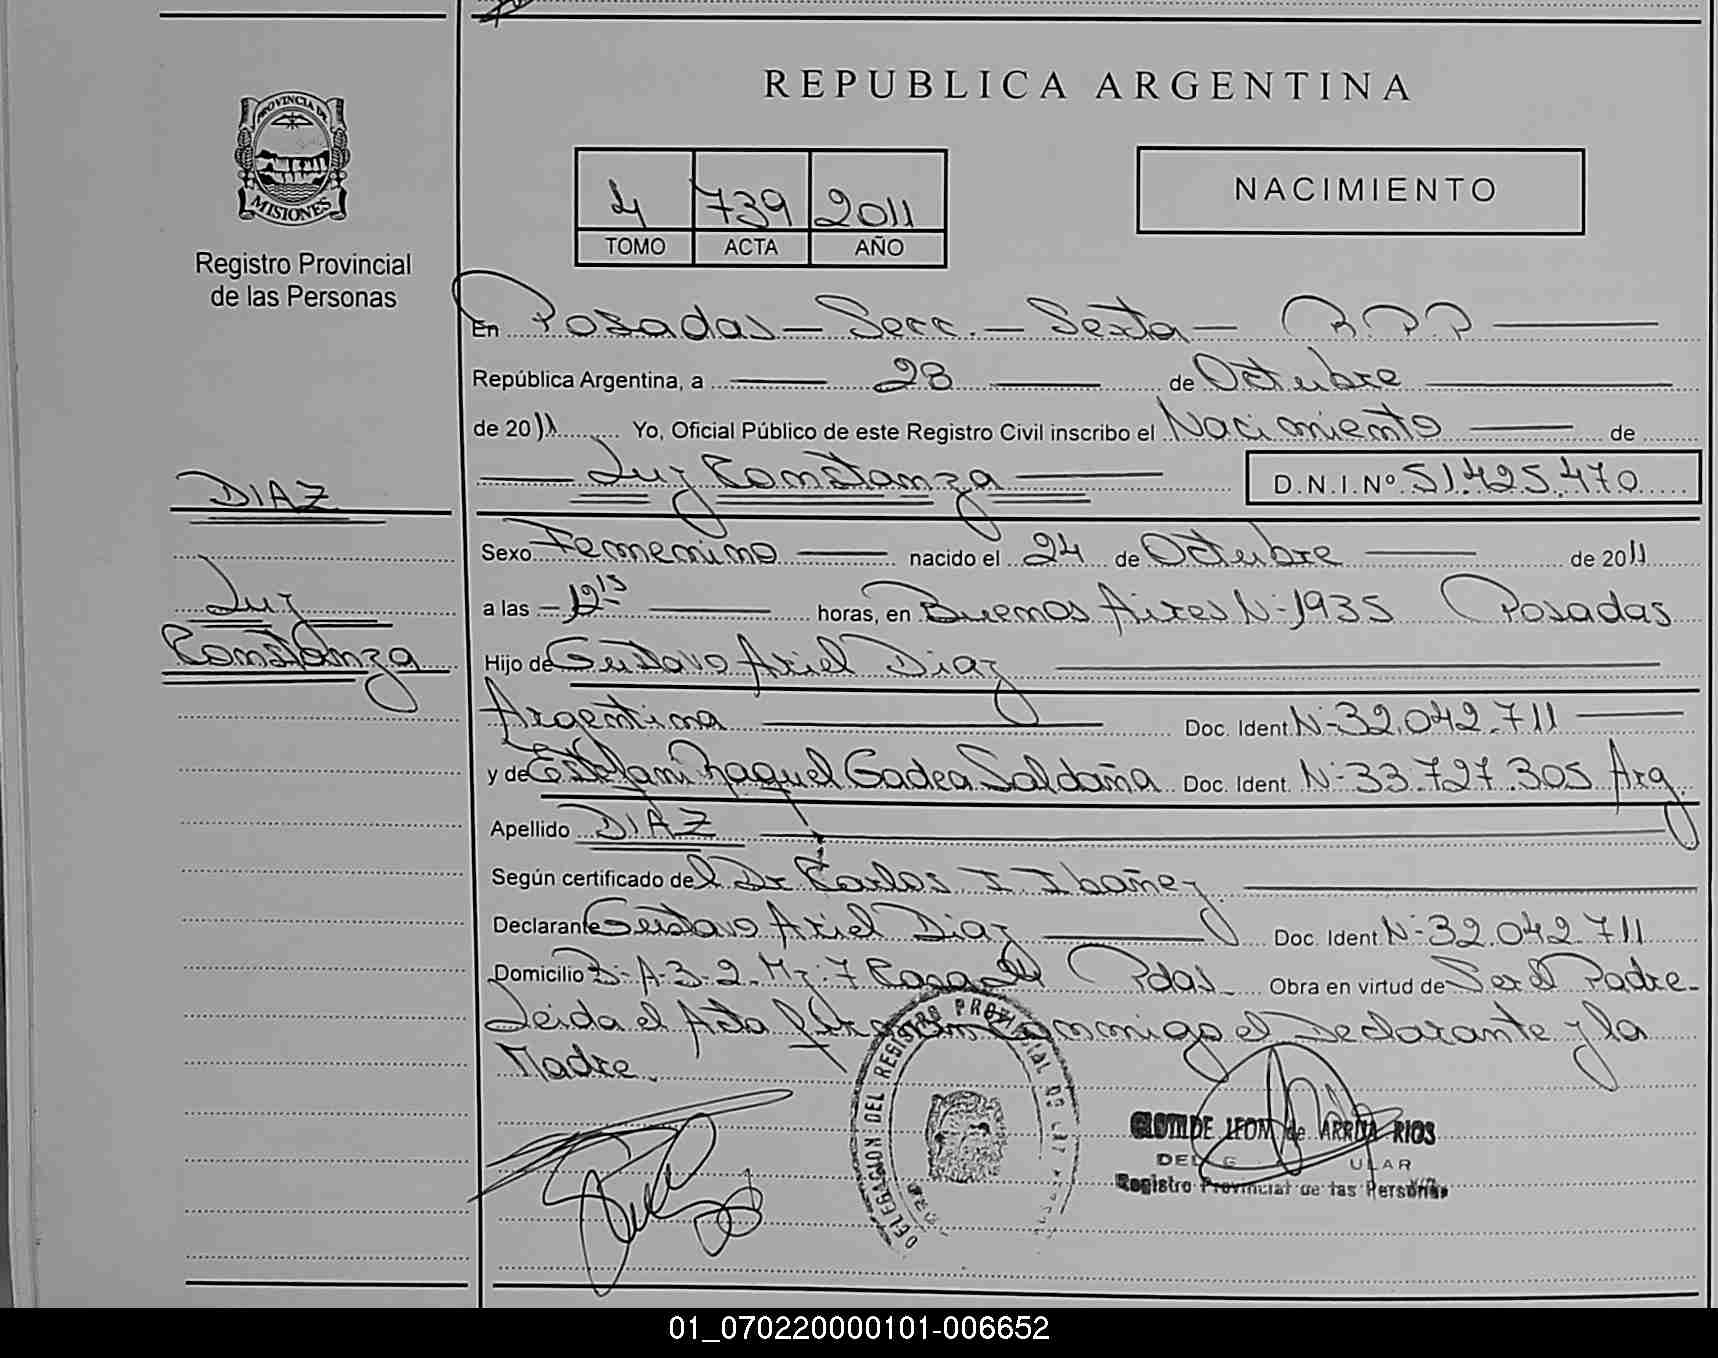 REPUBLICA ARGENTINA
PROVINCIA DE
MISIONES
Registro Provincial
de las Personas
4 739 2011
TOMO ACTA AÑO
NACIMIENTO
En Posadas - Secc. - Sexta - R.P.P
República Argentina, a 28 de Octubre
de 2011 Yo, Oficial Público de este Registro Civil inscribo el Nacimiento de
Luz Constanza D.N.I.Nº 51.425.470
DIAZ
Luz
Constanza
Sexo Femenino nacido el 24 de Octubre de 2011
a las 12 15 horas, en Buenos Aires N-1935 Posadas
Hijo de Gustavo Ariel Diaz
Argentina Doc. Ident. N-32.042.711
y de Estefani Raquel Gadea Saldaña Doc. Ident. N-33.727.305 Arg.
Apellido DIAZ
Según certificado del Dr Carlos I Ibañez
Declarante Gustavo Ariel Diaz Doc. Ident. N-32.042.711
Domicilio B-A-3-2-Mz-7 Casa Pdas Obra en virtud de Ser el Padre-
Leida el Acta conmigo el Declarante y la
Madre.
DELEGACION DEL REGISTRO PROVINCIAL DE LAS
CLOTILDE LEON de ARRUA RIOS
Registro Provincial de las Personas
01_070220000101-006652